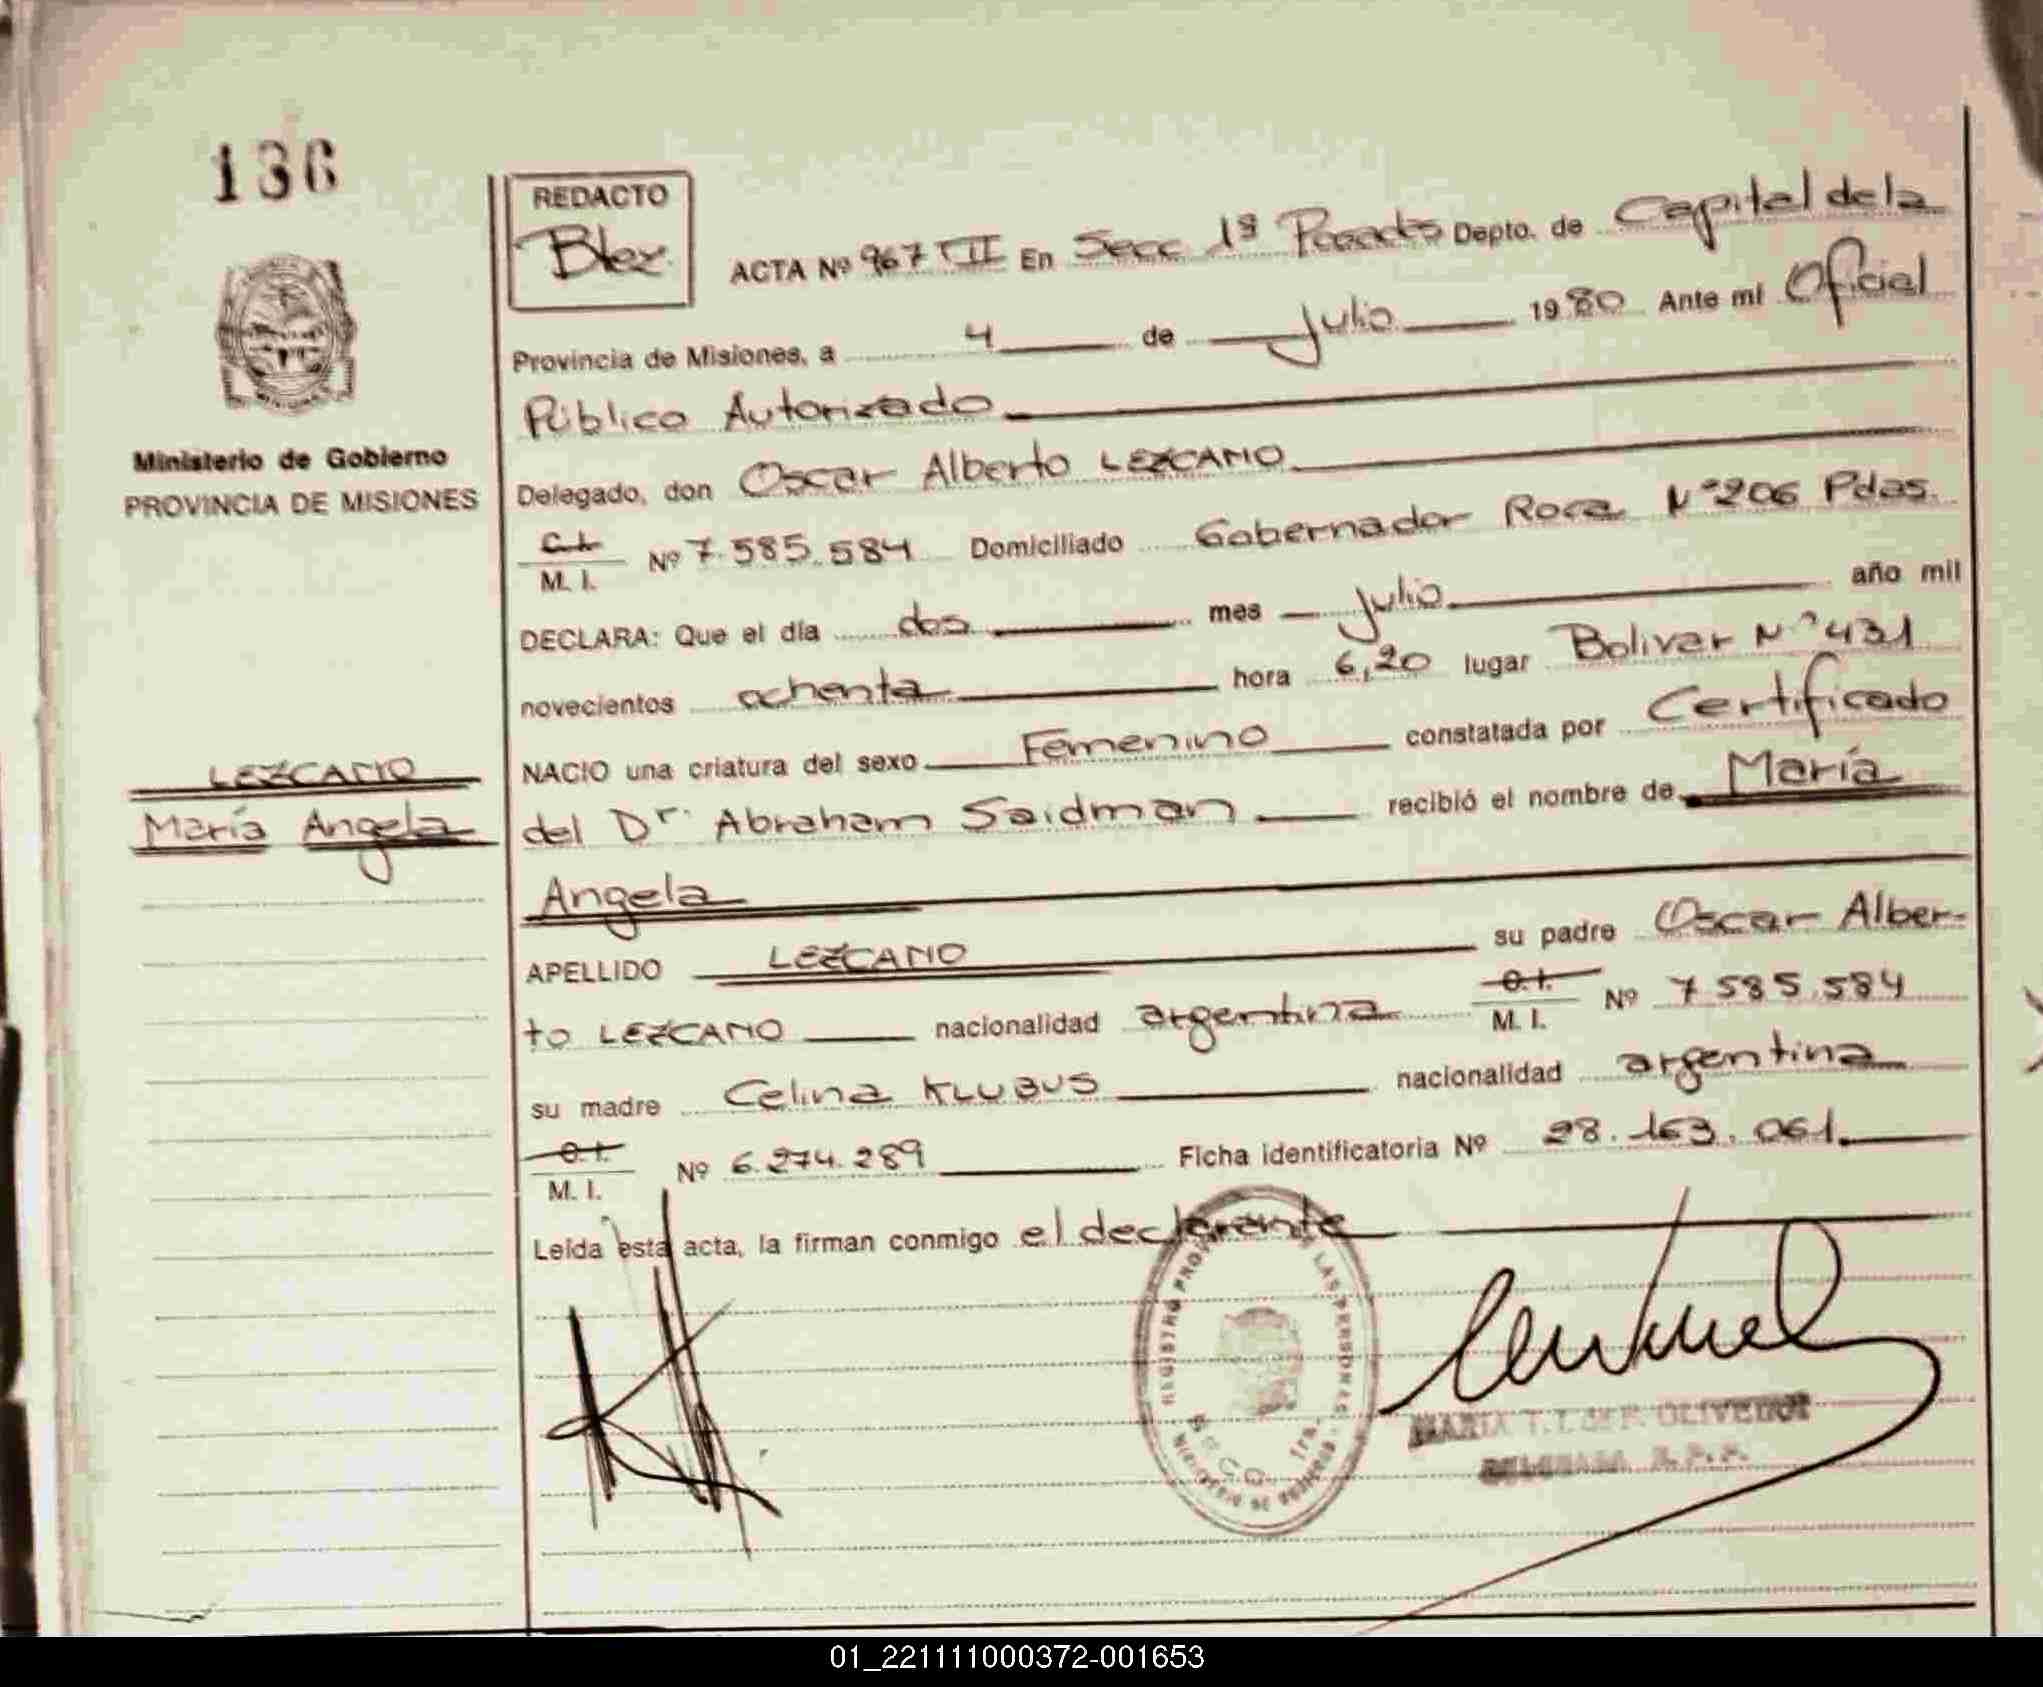 136
REDACTO
Blez.
ACTA Nº 967 TII En Secc 1ª Posadas Depto. de Capital de la
Provincia de Misiones, a 4 de Julio 1980 Ante mí Oficial
Público Autorizado
Delegado, don Oscar Alberto LEZCANO
C.I.
M. I. Nº 7.585.584 Domiciliado Gobernador Roca Nº 206 Pdas.
DECLARA: Que el día dos mes Julio año mil
novecientos ochenta hora 6,20 lugar Bolivar Nº 431
NACIO una criatura del sexo Femenino constatada por Certificado
del Dr. Abraham Saidman recibió el nombre de María
Angela
APELLIDO LEZCANO su padre Oscar Alber-
to LEZCANO nacionalidad argentina C.I.
M. I. Nº 7.585.584
su madre Celina KLUBUS nacionalidad argentina
C.I.
M. I. Nº 6.274.289 Ficha identificatoria Nº 28.163.061.
Leída esta acta, la firman conmigo el declarante
Ministerio de Gobierno
PROVINCIA DE MISIONES
LEZCANO
María Angela
REGISTRO PROV DE LAS PERSONAS
MINISTERIO DE GOBIERNO
Secc. 1ra.
MARIA T. I. de P. OLIVEIRA
01_221111000372-001653